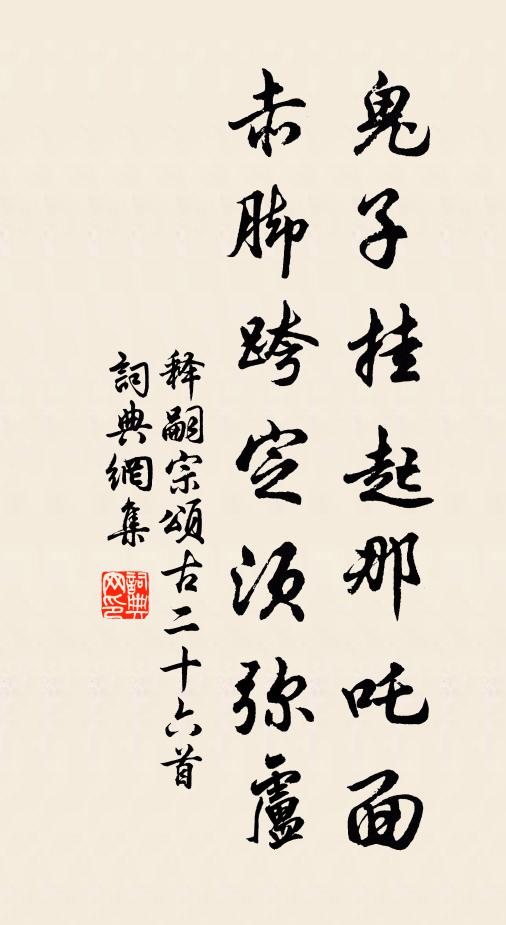 鬼子挂起那吒面
赤脚跨空须弥廬
释嗣宗頌古二十六首
詞典網集
詞典
网印